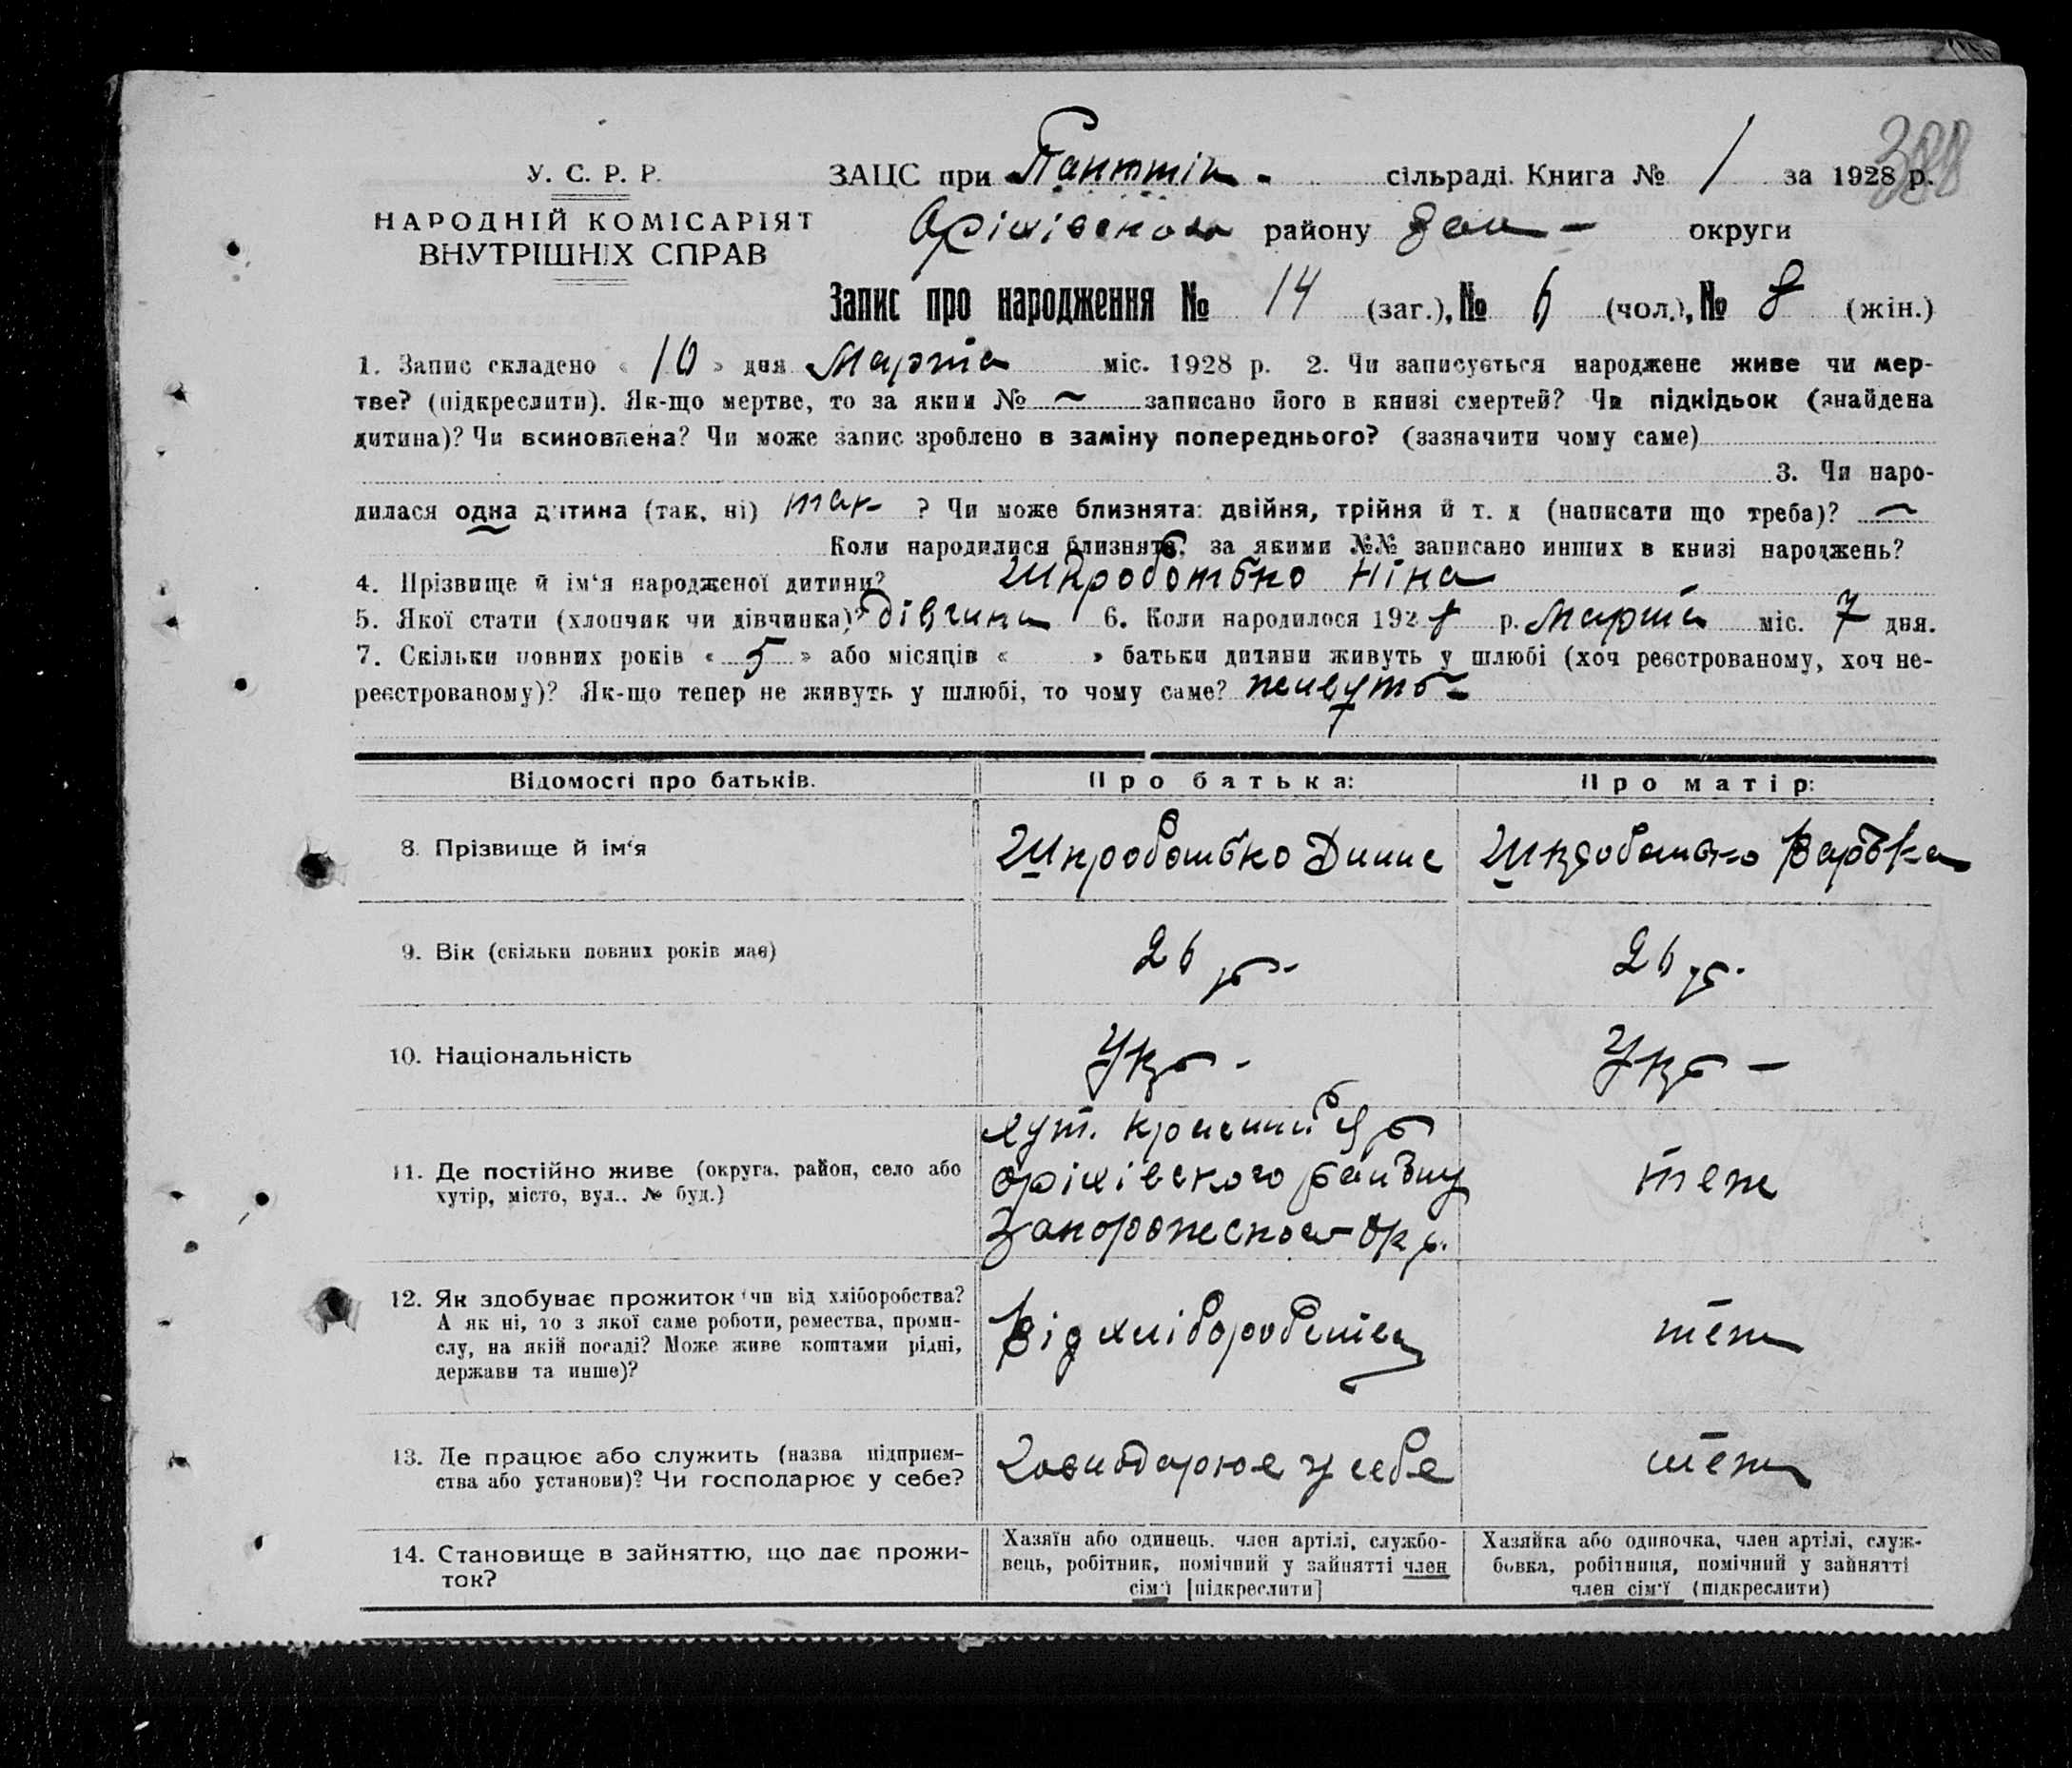 388
У. С. Р. Р.
НАРОДНІЙ КОМІСАРІЯТ
ВНУТРІШНІХ СПРАВ
ЗАЦС при сільраді. Книга № 1 за 1928 р.
Оріхівского району Зап – округи
Запис про народження № 14 (заг.), № 6 (чол.), № 8 (жін.)
1. Запис складено « 10 » дня Марта міс. 1928 р. 2. Чи записується народжене живе чи мер-
тве? (підкреслити). Як-що мертве, то за яким № ~ записано його в книзі смертей? Чи підкідьок (знайдена
дитина)? Чи всиновлена? Чи може запис зроблено в заміну попереднього? (зазначити чому саме)
3. Чи наро-
дилася одна дитина (так, ні) так ? Чи може близнята: двійня, трійня й т. д (написати що треба)? ~
Коли народилися близнята, за якими №№ записано инших в книзі народжень?
4. Прізвище й ім‘я народженої дитини? Шкроботько Ніна
5. Якої стати (хлопчик чи дівчинка)? дівчина 6. Коли народилося 1928 р. Марта міс. 7 дня.
7. Скільки повних років « 5 » або місяців « » батьки дитини живуть у шлюбі (хоч реєстрованому, хоч не-
реєстрованому)? Як-що тепер не живуть у шлюбі, то чому саме? живуть
Відомості про батьків. Про батька: Про матір:
8. Прізвище й ім‘я Шкроботько Динис Шкроботько Варька
9. Вік (скільки повних років має) 26 р. 26 р.
10. Національність Укр - Укр –
11. Де постійно живе (округа, район, село або
хутір, місто, вул.. № буд.)
хут. Красний Яр
Оріхівского району
Запорожеского Окр.
теж
12. Як здобуває прожиток (чи від хліборобства?
А як ні, то з якої саме роботи, ремества, проми-
слу, на якій посаді? Може живе коштами рідні,
держави та инше)?
Від хліборобства
теж
13. Де працює або служить (назва підприєм-
ства або установи)? Чи господарює у себе?
Господарює у себе
теж
14. Становище в зайняттю, що дає прожи-
ток?
Хазяїн або одинець, член артілі, службо-
вець, робітник, помічний у зайнятті член
сім‘ї [підкреслити]
Хазяйка або одиночка, член артілі, служ-
бовка, робітниця, помічний у зайнятті
член сім‘ї (підкреслити)